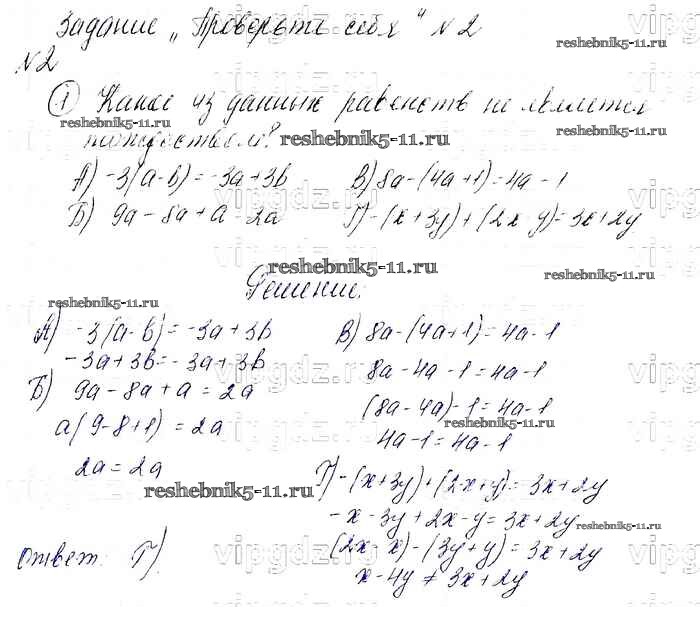 Задание „Проверьте себя" №2
№2
① Какое из данных равенств не является
тождеством?
А) -3(a-b) = -3a+3b
В) 8a-(4a+1)=4a-1
Б) 9a-8a+a=2a
Г) -(x+3y)+(2x-y)=3x+2y
Решение:
А) -3(a-b)=-3a+3b
-3a+3b=-3a+3b
Б) 9a-8a+a=2a
a(9-8+1)=2a
2a=2a
В) 8a-(4a+1)=4a-1
8a-4a-1=4a-1
(8a-4a)-1=4a-1
4a-1=4a-1
Г) -(x+3y)+(2x+y)=3x+2y
-x-3y+2x-y=3x+2y
(2x-x)-(3y+y)=3x+2y
x-4y≠3x+2y
Ответ: Г).
reshebnik5-11.ru
reshebnik5-11.ru
reshebnik5-11.ru
reshebnik5-11.ru
reshebnik5-11.ru
reshebnik5-11.ru
reshebnik5-11.ru
reshebnik5-11.ru
reshebnik5-11.ru
reshebnik5-11.ru
reshebnik5-11.ru
vipgdz.ru